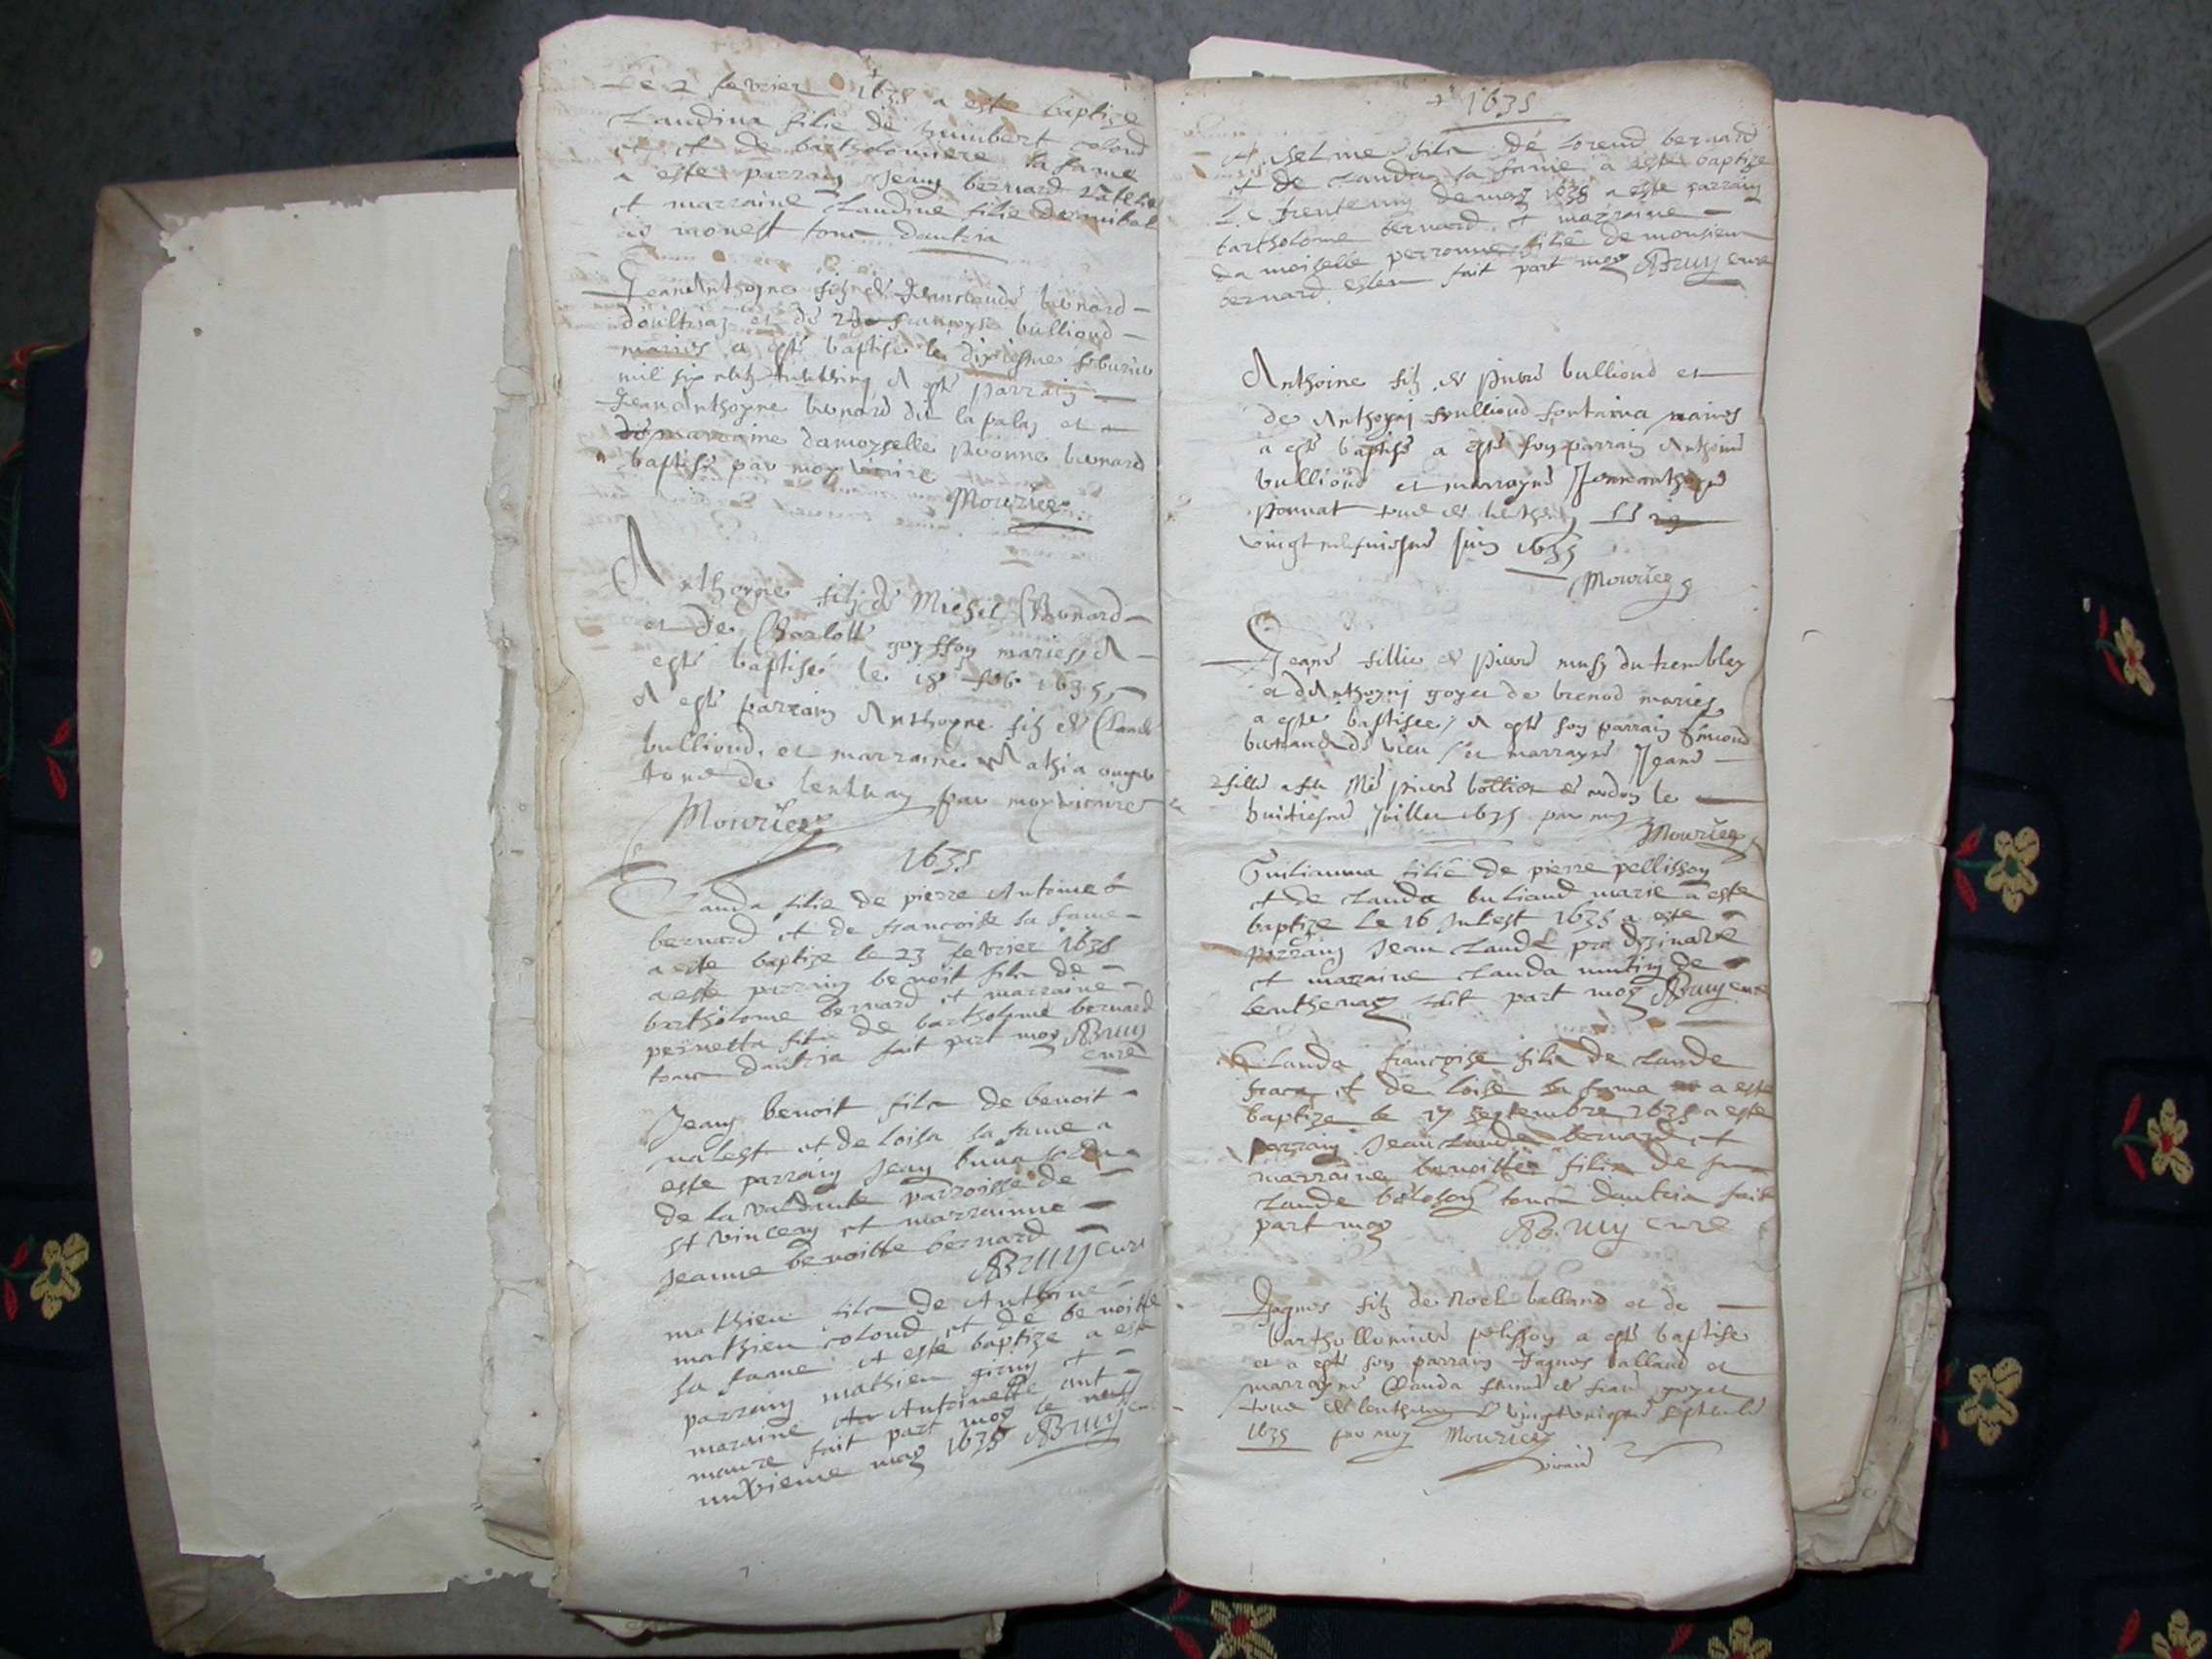 Le 2 fevrier 1635 a este baptize
Claudina filie de humbert colond
et de bartholomiere sa fame
a este parrain Jean bernard
et marraine Claudine filie de
monest tous doutria
JeanAnthoyne filz de Jeanclaude bernard
doultriaz et de françoyse bulliond
mariés a esté baptisé le dixiesme feburier
mil six A esté parrain
Jeananthoyne bernard dit la palaz et
marraine damoyselle bernard
baptisé par moy vicaire
Mouriez
Anthoyne filz de Michel Bernard
et de Charlotte goyffon mariez A
esté baptisé le 18 feb 1635
A esté parrain Anthoyne filz de Claude
bulliond et marraine Mathia
tous de lentenay par moy vicaire
Mouriez
1635
Clauda filie de pierre Antoine
bernard et de francoise sa fame
a este baptize le 23 fevrier 1635
a este parrain benoit fils de
bartholome bernard et marraine
pernetta filie de bartholome bernard
tous doutria fait part moy Bruy
cure
Jean benoit fils de benoit
et de loisa sa fame a
este parrain Jean
de la valdante parroisse de
st vincent et marrainne
Jeanne benoitte bernard
Bruy cure
mathieu fils de Anthoine
mathieu colond et de benoitte
sa fame A este baptize a este
parrain mathieu et
maraine Antoinette
maure fait part moy le neuf
may 1635 Bruy
1635
Anselme fils de lorend bernard
et de Clauda sa fame a este baptize
Le trente may 1635 a este parrain
bartholome bernard et marraine
damoiselle perronne filie de monsieur
bernard esleu fait part moy Bruy cure
Anthoine filz de Pierre bulliond et
de Anthoyaz fontaina mariés
a esté baptisé a esté son parrain Anthoine
bulliond et marrayne Jeananthoyne
Ponnat tous de lenthenay
Juin 1635
Mouriez
Jeane fillie de Pierre du tremblay
et dAnthoyni goyet de brenod mariés
a esté baptisée A esté son parrain
de vieu et marrayne Jeane
fillie a feu Me pierre le
huitiesme Juillet 1635 par moy
Mouriez
Guilianma filie de pierre pellisson
et de Clauda buliand marie a este
baptize Le 16 Juliest 1635 a este
parrain Jean Claude
et maraine Clauda de
lenthenay fait part moy Bruy cure
Clauda françoise filie de Claude
et de loise sa fama a este
baptize le 17 septembre 1635 a este
parrain Jean Claude bernard et
marraine benoitte filie de
Claude tous doutria fait
part moy Bruy cure
Jaques filz de Noel balland et de
barthollomiere pelisson a esté baptisé
et a esté son parrain Jaques balland et
marrayne Clauda feme de goyet
tous de lenthenay septembre
1635 par moy Mouriez
vicaire